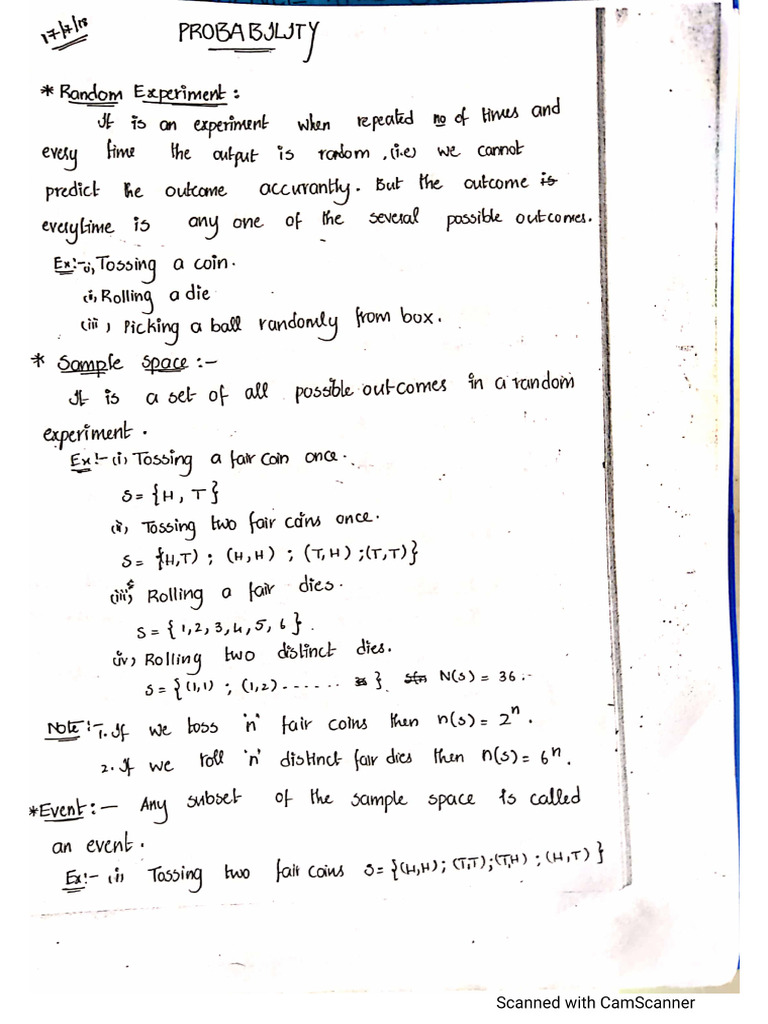 17/7/18
PROBABILITY
* Random Experiment :
It is an experiment when repeated no of times and
every time the output is random , (i.e) we cannot
predict the outcome accurantly. But the outcome is
everytime is any one of the several possible outcomes.
Ex:- i, Tossing a coin.
(i, Rolling a die
(iii) Picking a ball randomly from box.
* Sample Space :-
It is a set of all possible outcomes in a random
experiment.
Ex!- (i) Tossing a fair coin once.
S = {H, T}
(ii, Tossing two fair coins once.
S = {H,T) ; (H,H) ; (T,H) ; (T,T)}
(iii, Rolling a fair dies.
S = { 1,2,3,4,5,6 }.
(iv) Rolling two distinct dies.
S = {(1,1) ; (1,2) ...... }. N(s) = 36 :-
Note:- 1. If we toss 'n' fair coins then n(s) = 2ⁿ.
2. If we roll 'n' distinct fair dies then n(s) = 6ⁿ.
* Event :- Any subset of the sample space is called
an event.
Ex!- (i) Tossing two fair coins S = {(H,H); (T,T); (T,H) ; (H,T) }
Scanned with CamScanner